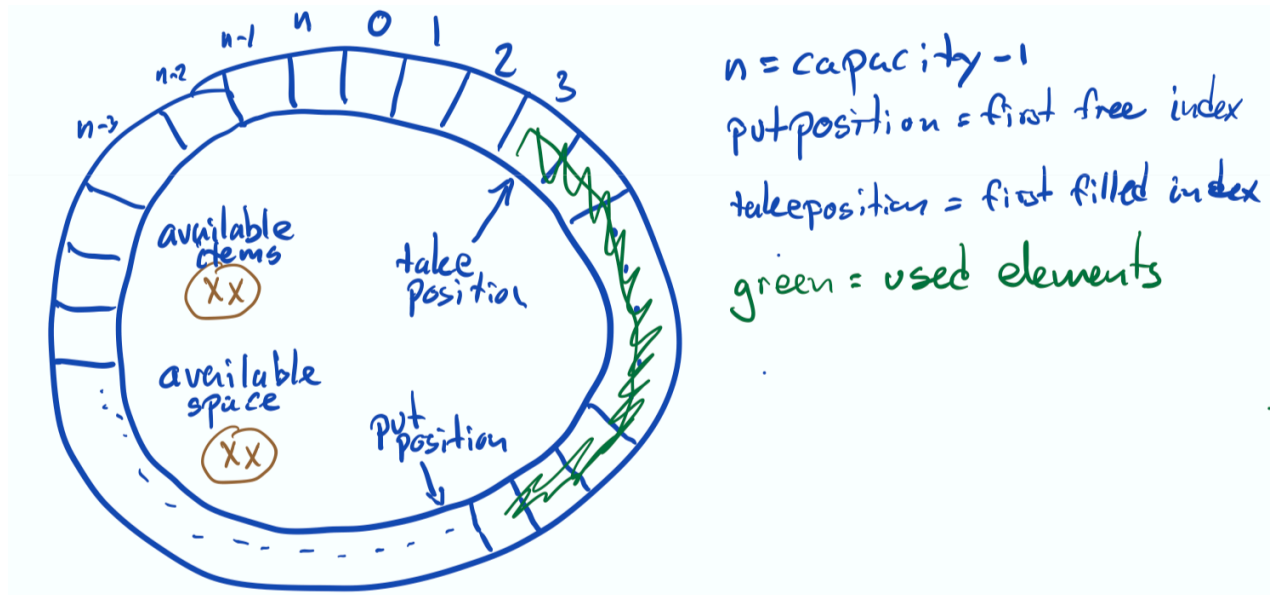 n-3
n-2
n-1
n
0
1
2
3
available
items
XX
available
space
XX
take
position
put
position
n = capacity - 1
putposition = first free index
takeposition = first filled index
green = used elements